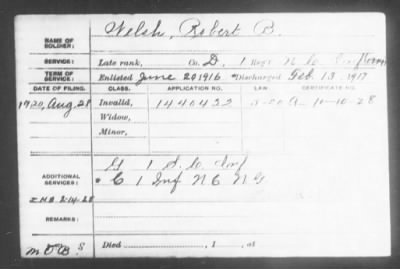 NAME OF SOLDIER: Welsh, Robert B.
SERVICE: Late rank, Co. D, 1 Reg't N. C.
TERM OF SERVICE: Enlisted June 20 1916 *Discharged Feb. 13 1917
DATE OF FILING. CLASS. APPLICATION NO. LAW CERTIFICATE NO.
1920, Aug. 28 Invalid, 1440422 10-10-28
Widow,
Minor,
G 1 Inf
ADDITIONAL SERVICES: * C 1 Inf N C N G
2-14-28
REMARKS:
S
Died , 1 , at